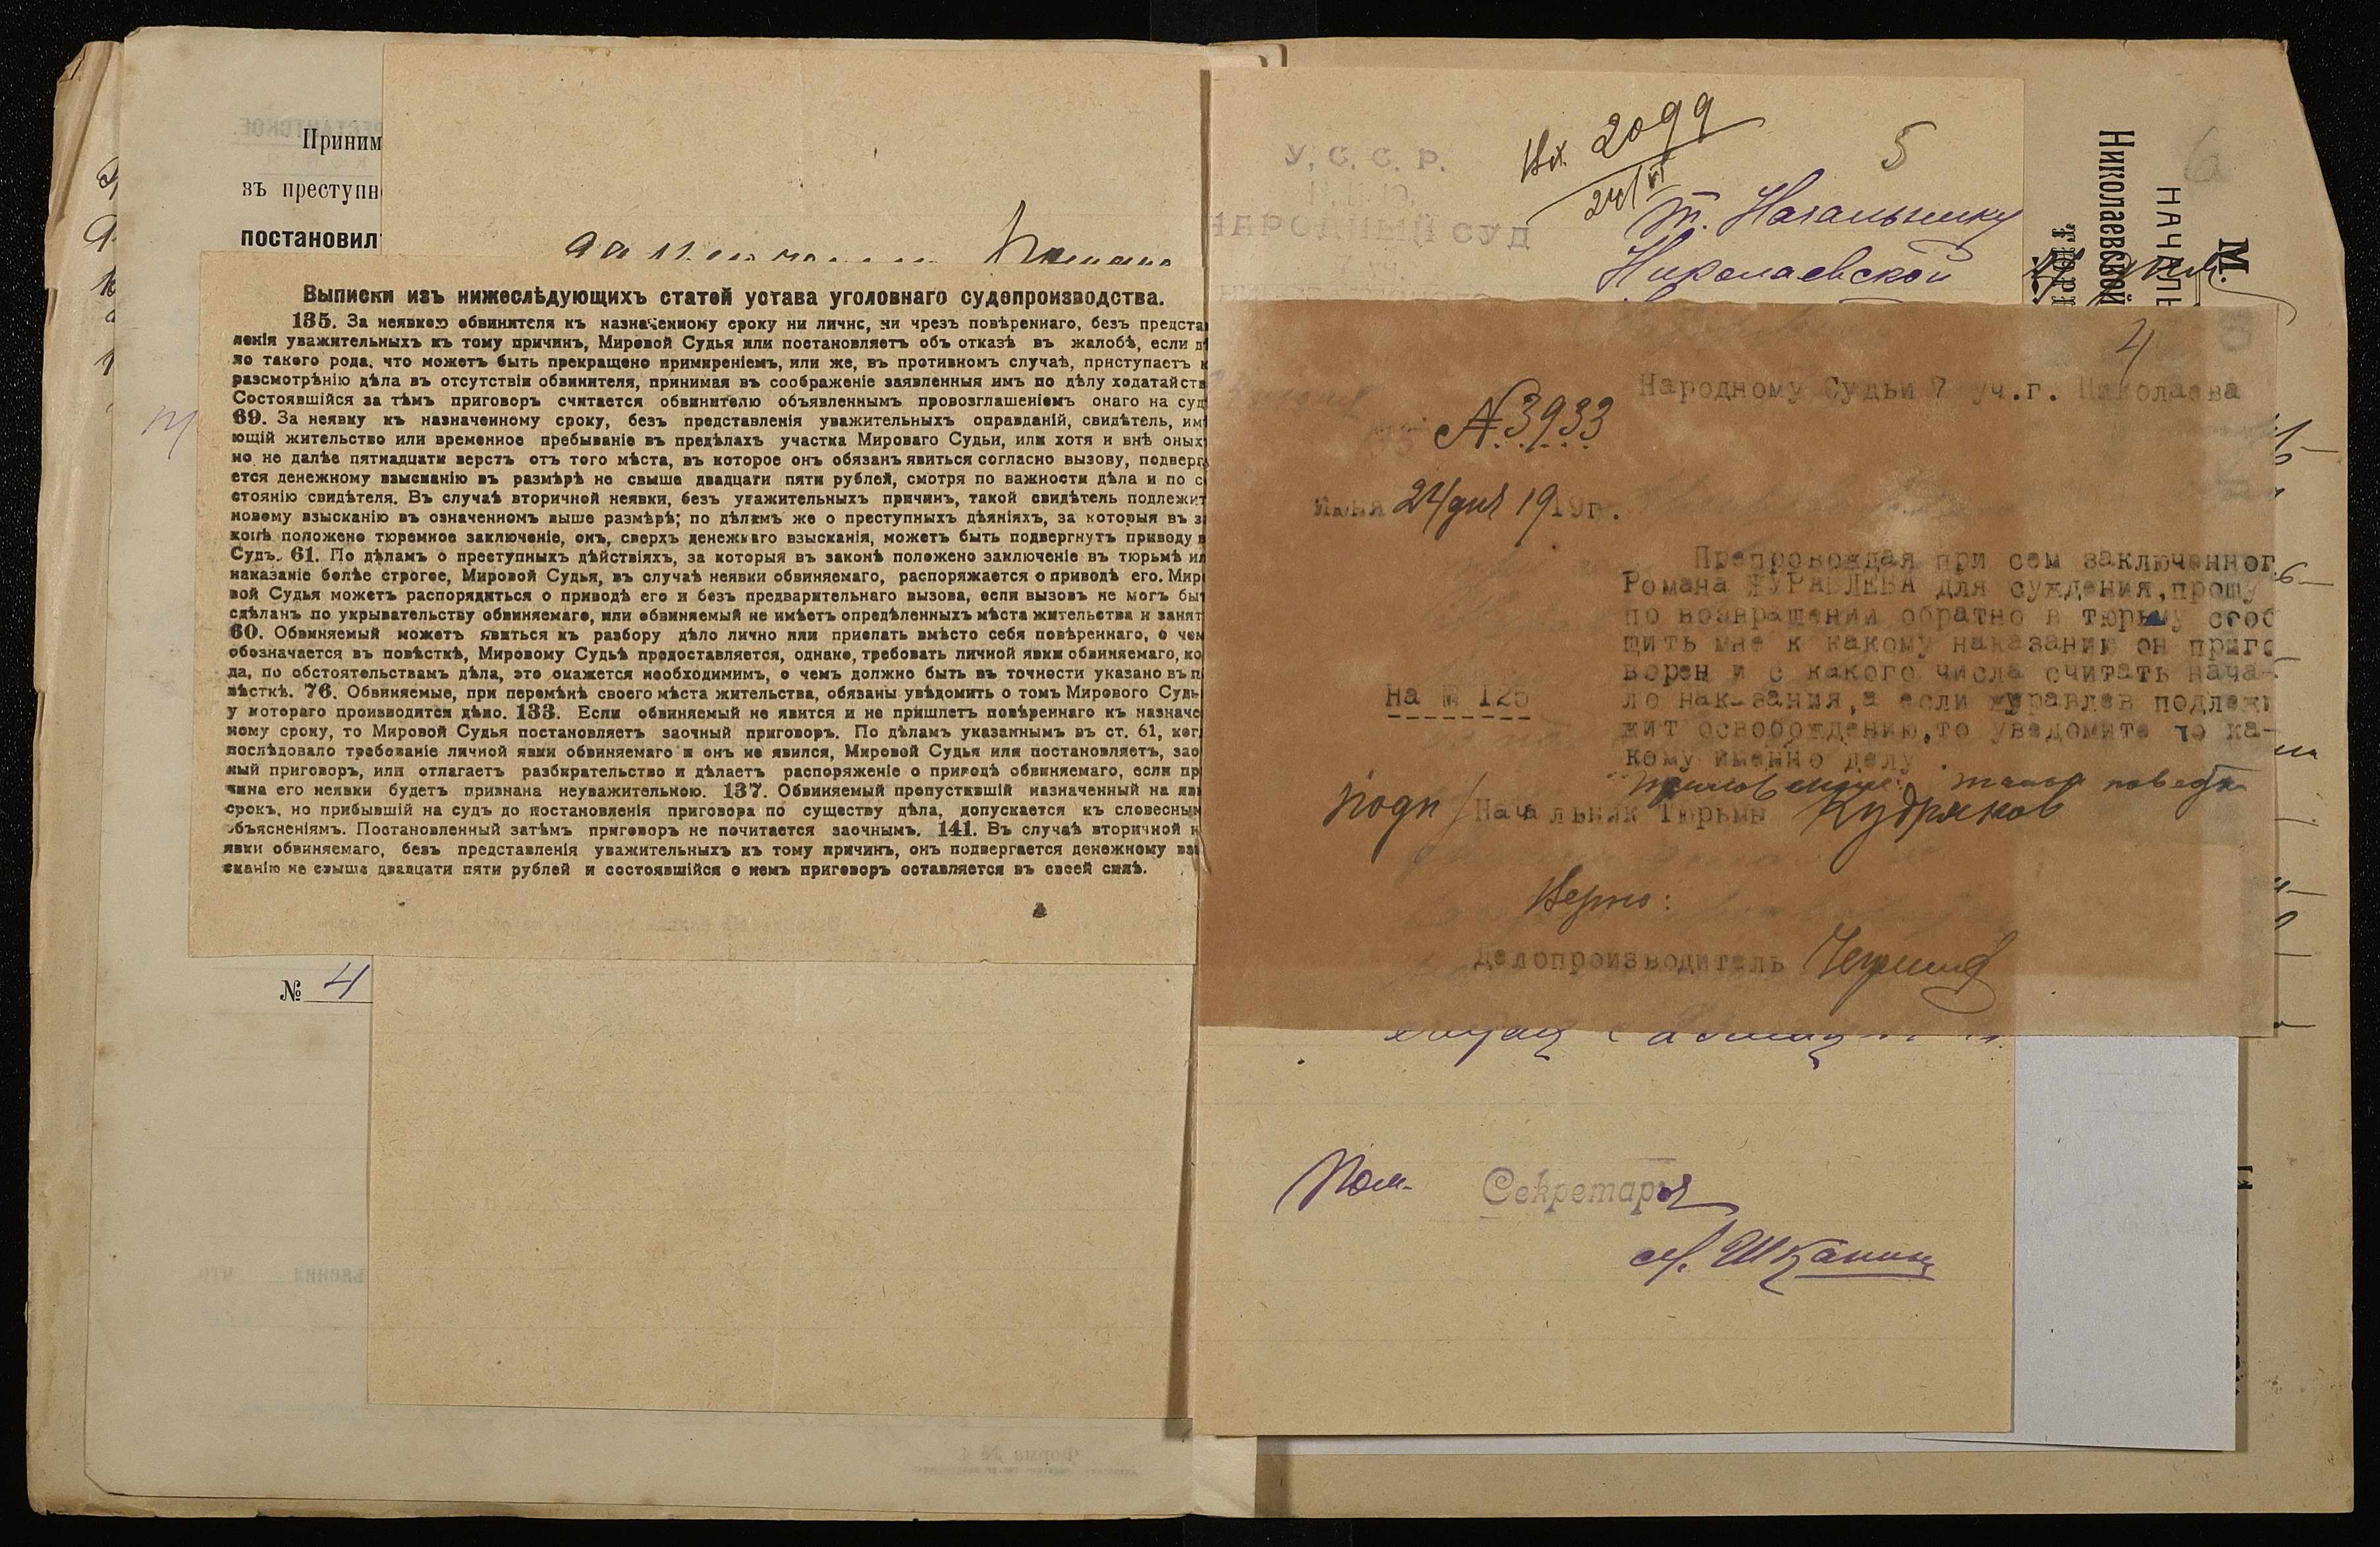 Приним
въ преступн
постановил
Выписки изъ нижеслѣдующихъ статей устава уголовнаго судопроизводства.
135. За неявкою обвинителя къ назначенному сроку ни лично, ни чрезъ повѣреннаго, безъ предста
ленія уважительныхъ къ тому причинъ, Мировой Судья или постановляетъ объ отказѣ въ жалобѣ, если
ло такого рода, что можетъ быть прекращено примиреніемъ, или же, въ противномъ случаѣ, приступаетъ к
разсмотрѣнію дѣла въ отсутствіи обвинителя, принимая въ соображеніе заявленныя имъ по дѣлу ходатайств
Состоявшійся за тѣмъ приговоръ считается обвинителю объявленнымъ провозглашеніемъ онаго на суд
69. За неявку къ назначенному сроку, безъ представленія уважительныхъ оправданій, свидѣтель, им
ющій жительство или временное пребываніе въ предѣлахъ участка Мироваго Судьи, или хотя и внѣ оных
но не далѣе пятнадцати верстъ отъ того мѣста, въ которое онъ обязанъ явиться согласно вызову, подверг
ется денежному взысканію въ размѣрѣ не свыше двадцати пяти рублей, смотря по важности дѣла и по с
стоянію свидѣтеля. Въ случаѣ вторичной неявки, безъ уважительныхъ причинъ, такой свидѣтель подлежит
новому взысканію въ означенномъ выше размѣрѣ; по дѣламъ же о преступныхъ дѣяніяхъ, за которыя въ з
конѣ положено тюремное заключеніе, онъ, сверхъ денежнаго взысканія, можетъ быть подвергнутъ приводу в
Судъ. 61. По дѣламъ о преступныхъ дѣйствіяхъ, за которыя въ законѣ положено заключеніе въ тюрьмѣ ил
наказаніе болѣе строгое, Мировой Судья, въ случаѣ неявки обвиняемаго, распоряжается о приводѣ его. Мир
вой Судья можетъ распорядиться о приводѣ его и безъ предварительнаго вызова, если вызовъ не могъ бы
сдѣланъ по укрывательству обвиняемаго, или обвиняемый не имѣетъ опредѣленныхъ мѣста жительства и занят
60. Обвиняемый можетъ явиться къ разбору дѣло лично или прислать вмѣсто себя повѣреннаго, о чем
обозначается въ повѣсткѣ, Мировому Судьѣ предоставляется, однако, требовать личной явки обвиняемаго, ко
да, по обстоятельствамъ дѣла, это окажется необходимимъ, о чемъ должно быть въ точности указано въ п
вѣсткѣ. 76. Обвиняемые, при перемѣнѣ своего мѣста жительства, обязаны увѣдомить о томъ Мирового Судь
у котораго производится дѣло. 133. Если обвиняемый не явится и не пришлетъ повѣреннаго къ назначе
ному сроку, то Мировой Судья постановляетъ заочный приговоръ. По дѣламъ указаннымъ въ ст. 61, ког
послѣдовало требованіе личной явки обвиняемаго и онъ не явился, Мировой Судья или постановляетъ, зао
ный приговоръ, или отлагаетъ разбирательство и дѣлаетъ распоряженіе о приводѣ обвиняемаго, если пр
чина его неявки будетъ признана неуважительною. 137. Обвиняемый пропустившій назначенный на яв
срокъ, но прибывшій на судъ до постановленія приговора по существу дѣла, допускается къ словесным
объясненіямъ. Постановленный затѣмъ приговоръ не почитается заочнымъ. 141. Въ случаѣ вторичной н
явки обвиняемаго, безъ представленія уважительныхъ къ тому причин, онъ подвергается денежному вз
сканію не свыше двадцати пяти рублей и состоявшійся о немъ приговоръ оставляется въ своей силѣ.
№ 4
У. С. С. Р.
НАРОДНЫЙ СУД
Вх. 2099
24/VI
5
Т. Начальнику
Николаевской
6
НАЧАЛЬ
Николаевской
М.
4
Народному Судьи 7 уч.г. Николаева
№ 3933
июня 24 дня 1919г.
Препровождая при сем заключенног
Романа ЖУРАВЛЕВА для суждения,прошу
по возвращении обратно в тюрьму сооб
щить мне к какому наказанию он приго
ворен и с какого числа считать нача-
ло наказания,а если журавлев подлежи
жит освобождению,то уведомите по ка-
кому именно делу
На № 125
подп/ Начальник Тюрьмы Кудряков
Верно:
Делопроизводитель
Пом. Секретаря